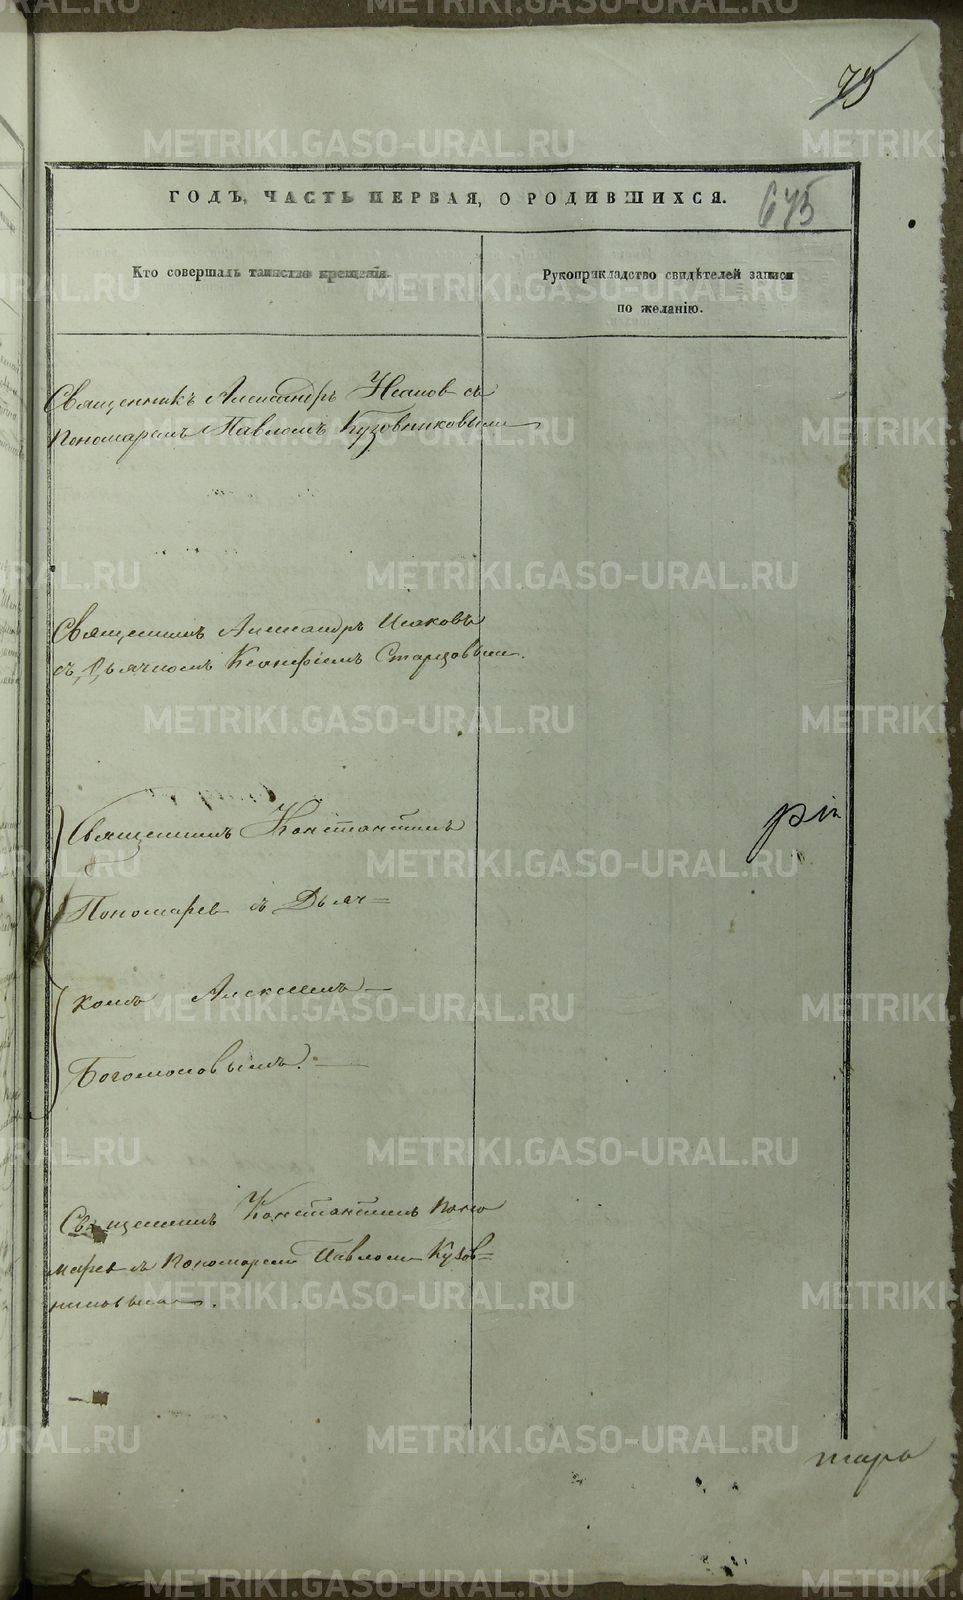 79
ГОДЪ, ЧАСТЬ ПЕРВАЯ, О РОДИВШИХСЯ.
675
Кто совершалъ таинство крещенія.
Рукоприкладство свидѣтелей записи
по желанію.
Священникъ Александръ Исаков съ
Пономаремъ Павломъ Кузовниковымъ
Священникъ Александръ Исаковъ
съ Дьячкомъ Ксанфіемъ Старцовымъ.
Священникъ Константинъ
Пономарев съ Дьяч=
комъ Алексѣемъ
Богомоловымъ.
Священникъ Константинъ Поно
марев съ Пономаремъ Павломъ Кузов=
никовымъ.
METRIKI.GASO-URAL.RU